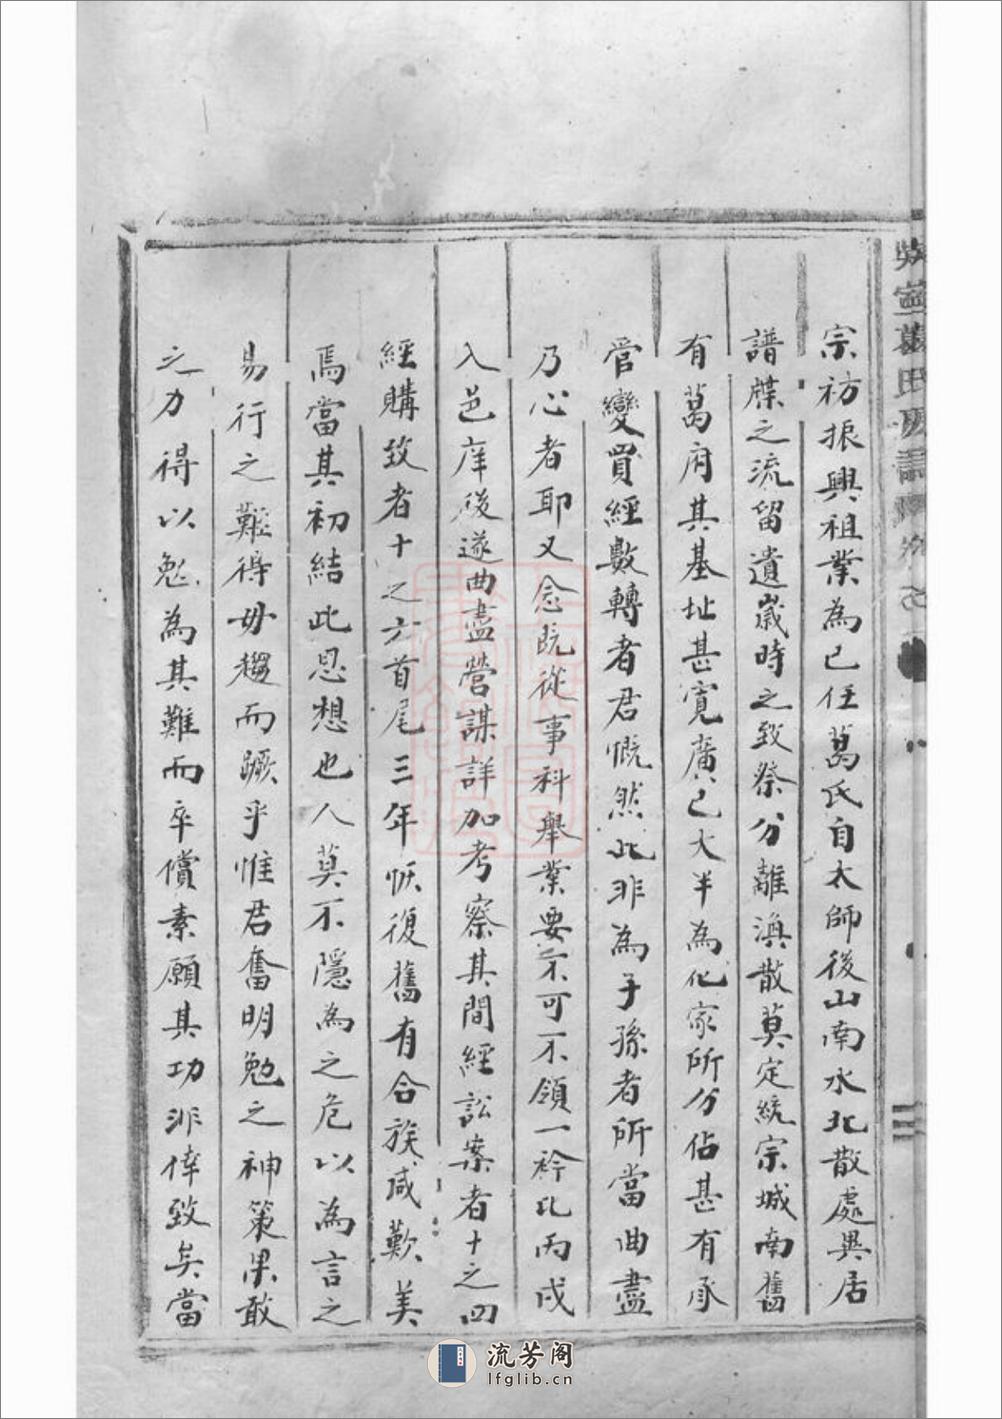 宗祊振興祖業為己任萬氏自太師後山南水北散處異居
譜牒之流留遺歲時之致祭分離渙散莫定統宗城南舊
有萬府其基址甚寬廣已大半為他家所分佔甚有承
管變買經數轉者君慨然此非為子孫者所當曲盡
乃心者耶又念既從事科舉業要不可不領一衿比丙戌
入邑庠後遂曲盡營謀詳加考察其間經訟案者十之四
經購致者十之六首尾三年恢復舊有合族咸歎美
焉當其初結此思想也人莫不隱為之危以為言之
易行之難得毋趨而蹶乎惟君奮明勉之神策果敢
之力得以勉為其難而卒償素願其功非倖致矣當
流芳阁
lfglib.cn